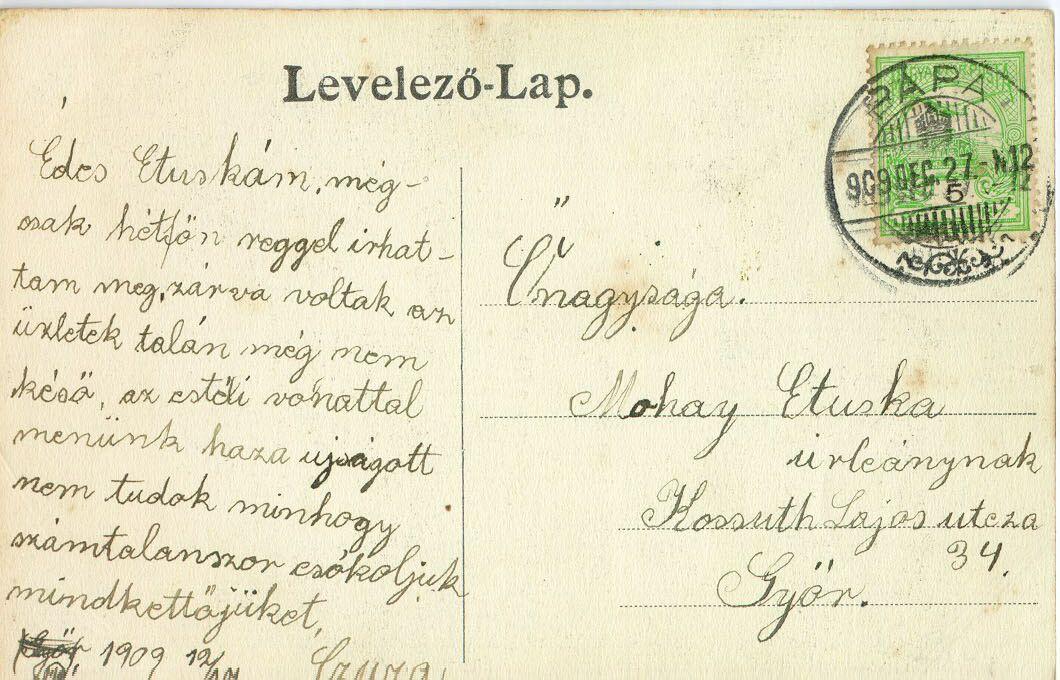 Levelező-Lap.
PÁPA
909 DEC. 27.-N12
5
Édes Etuskám, még-
csak hétfőn reggel irhat-
tam meg, zárva voltak az
üzletek talán még nem
késő, az estéli vonattal
menünk haza ujságott
nem tudok minhogy
számtalanszor csókoljuk
mindkettőjüket,
1909 12/
Őnagysága.
Mohay Etuska
urleánynak
Kossuth Lajos utcza
34.
Győr.